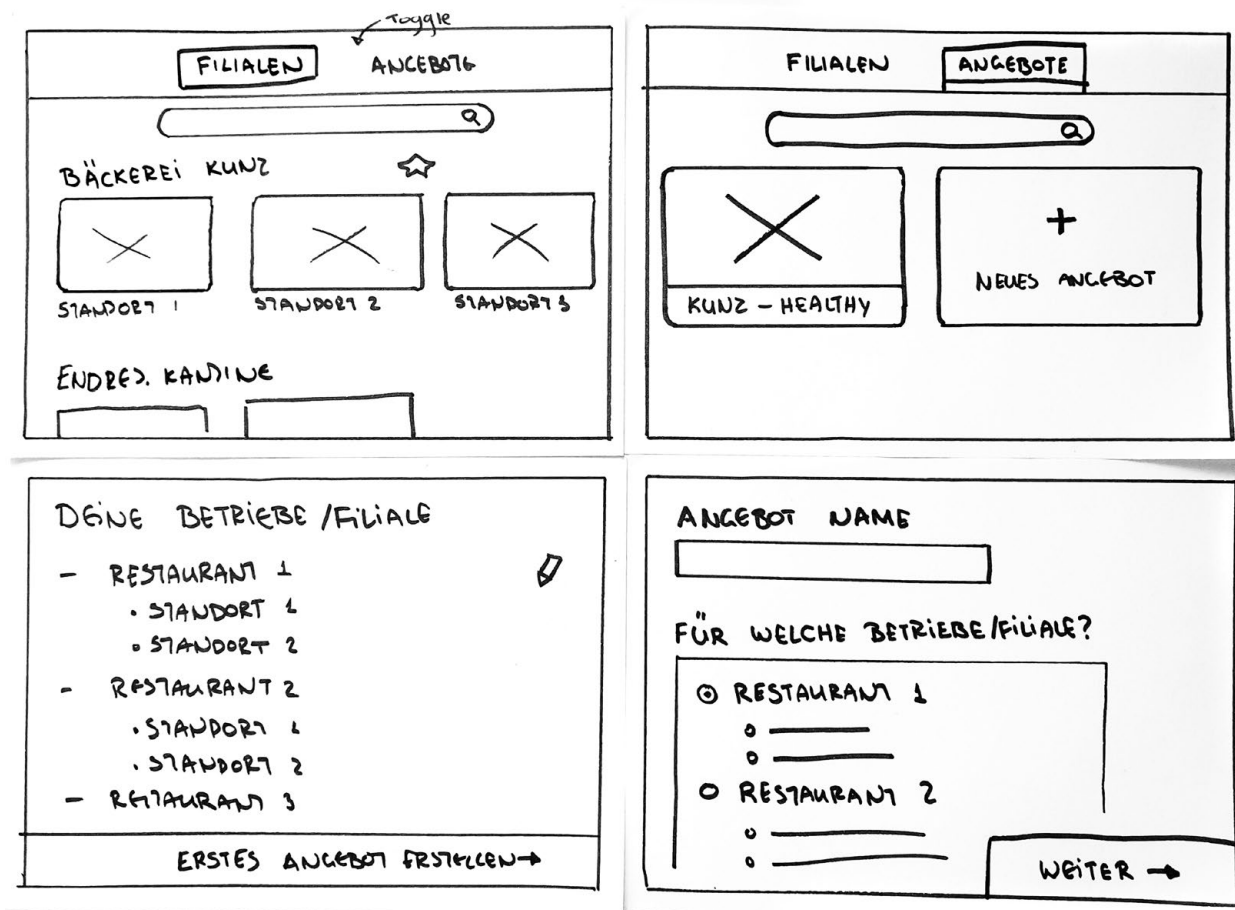 Toggle
FILIALEN ANGEBOTE
BÄCKEREI KUNZ
STANDORT 1 STANDORT 2 STANDORT 3
ENDRES. KANTINE
FILIALEN ANGEBOTE
KUNZ – HEALTHY
+
NEUES ANGEBOT
DEINE BETRIEBE/FILIALE
- RESTAURANT 1
• STANDORT 1
• STANDORT 2
- RESTAURANT 2
• STANDORT 1
• STANDORT 2
- RESTAURANT 3
ERSTES ANGEBOT ERSTELLEN →
ANGEBOT NAME
FÜR WELCHE BETRIEBE/FILIALE?
RESTAURANT 1
RESTAURANT 2
WEITER →